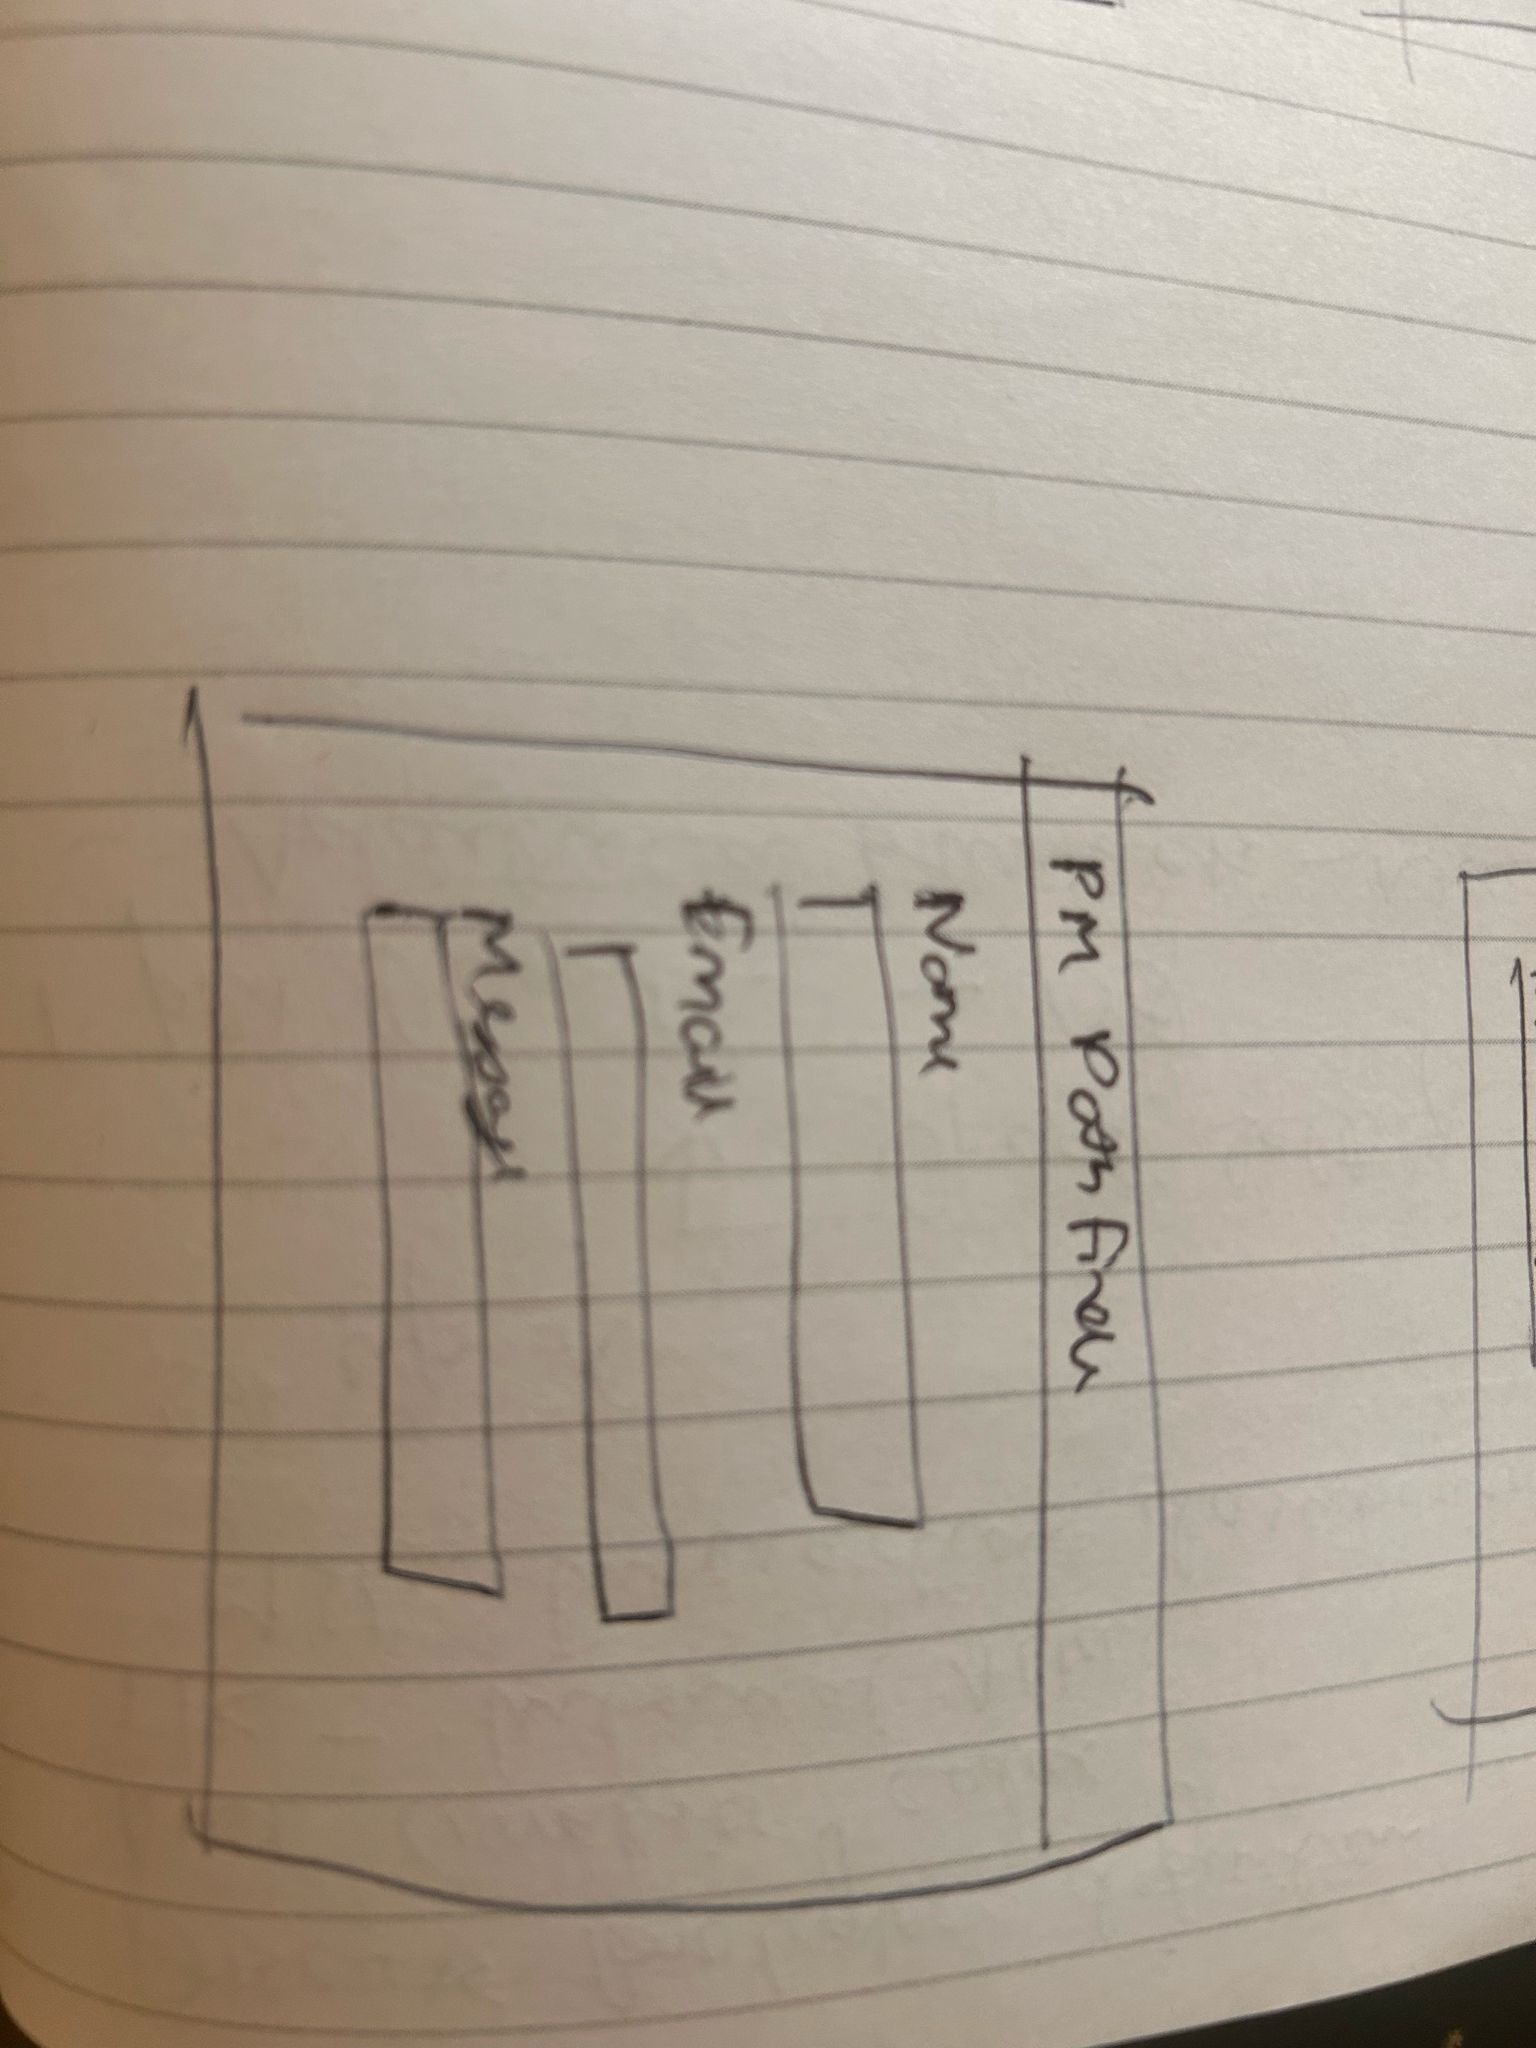 PM Pathfinder
Name
Email
Message